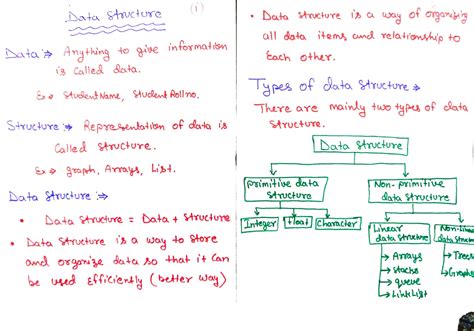 Data Structure
(1)
Data :⇒ Anything to give information
is called data.
Ex → StudentName, StudentRollno.
Structure :⇒ Representation of data is
Called structure.
Ex → graph, Arrays, List.
Data Structure :⇒
• Data Structure = Data + Structure
• Data Structure is a way to store
and organize data so that it can
be used efficiently (better way)
• Data structure is a way of organising
all data items and relationship to
Each other.
Types of data structure :→
There are mainly two types of data
structure.
Data Structure
primitive data
structure
Non-primitive
data structure
Integer
float
Character
Linear
data structure
Non-linear
data structure
→ Arrays
→ Stacks
→ queue
→ Link List
→ Trees
→ Graphs